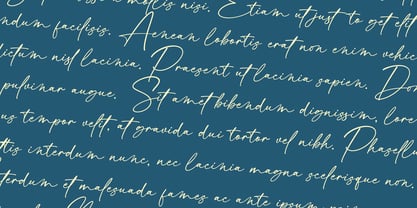 a mollis nisi. Etiam ut justo to get
ndum facilisis. Aenean lobortis erat non enim vehic
dictum nisl lacinia. Praesent ut lacinia sapien. Do
pulvinar augue. Sit amet bibendum dignissim, lore
us tempor velit, at gravida dui tortor vel nibh. Phasellu
tis interdum nunc, nec lacinia magna scelerisque non
terdum et malesuada fames ac ante ipsum